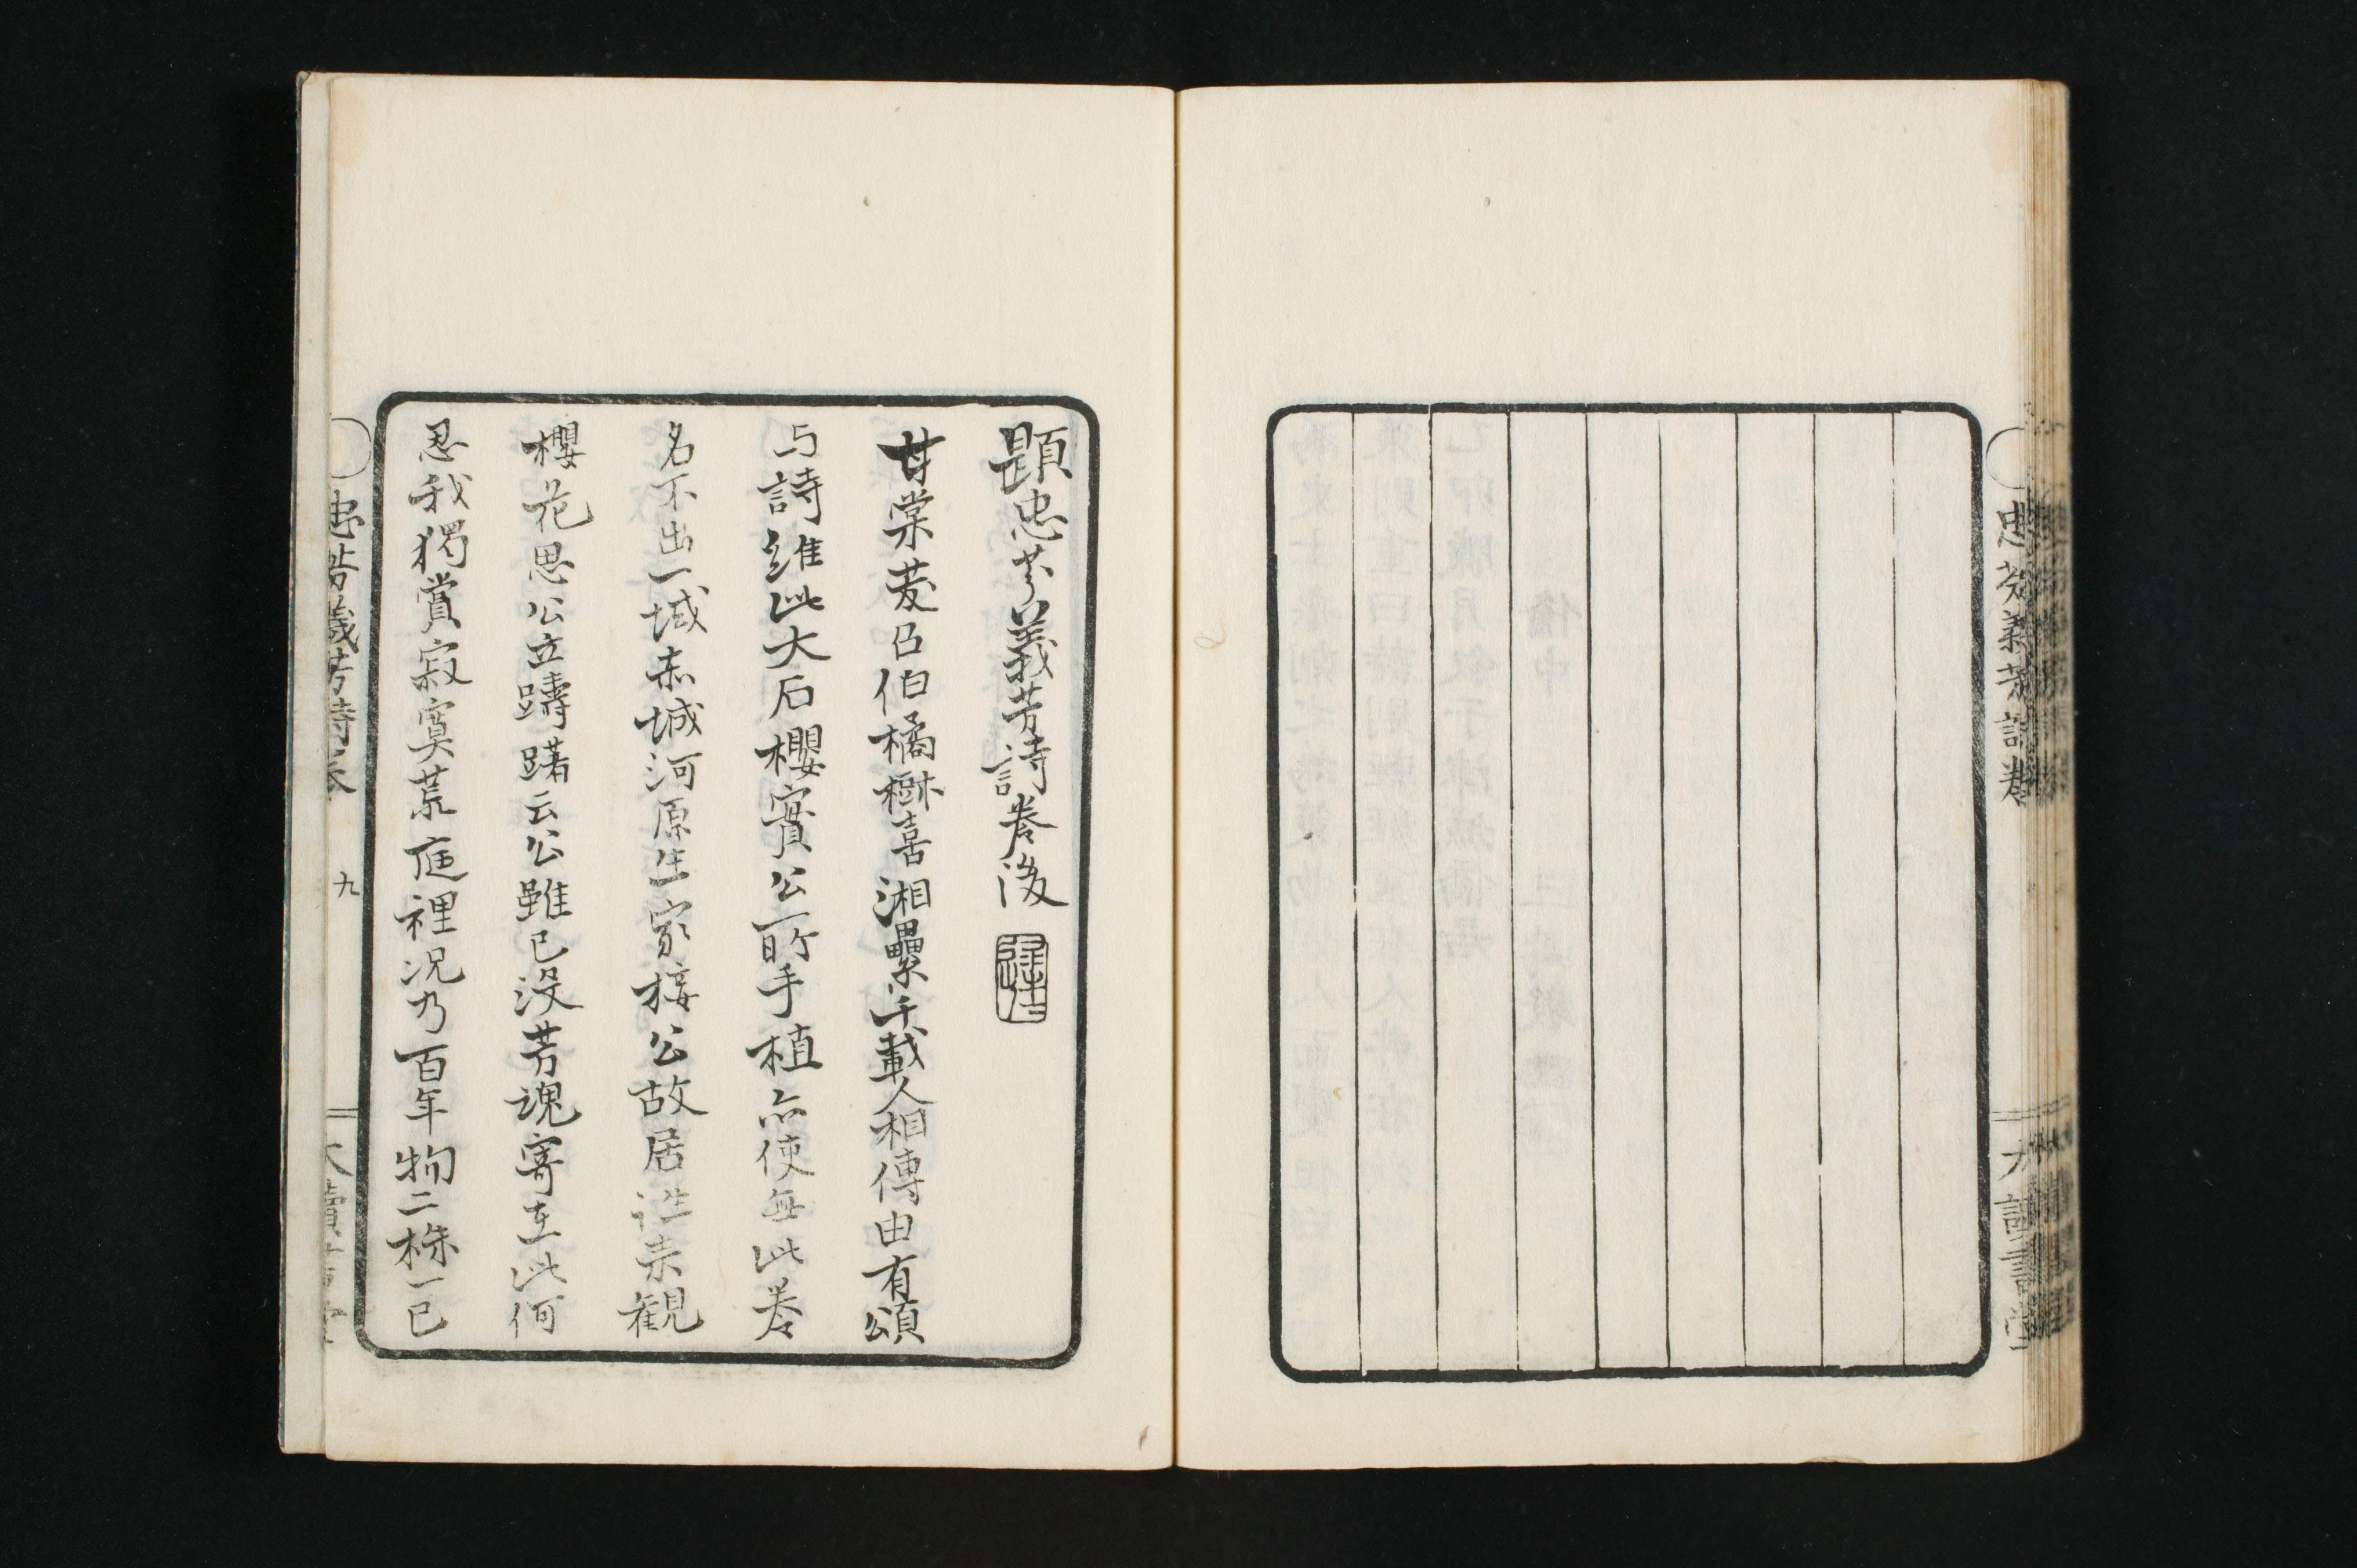 忠芬義芳詩巻
題忠芬義芳詩巻後
甘棠茇召伯橘樹喜湘纍千載人相傳由有頌
与詩維此大石櫻實公所手植尓使無此巻
名不出一域赤城河原生家接公故居迋来観
櫻花思公立躊躇云公雖已没芳魂寄在此何
忍我獨賞寂寞荒庭裡況乃百年物二株一已
忠芬義芳詩巻
九